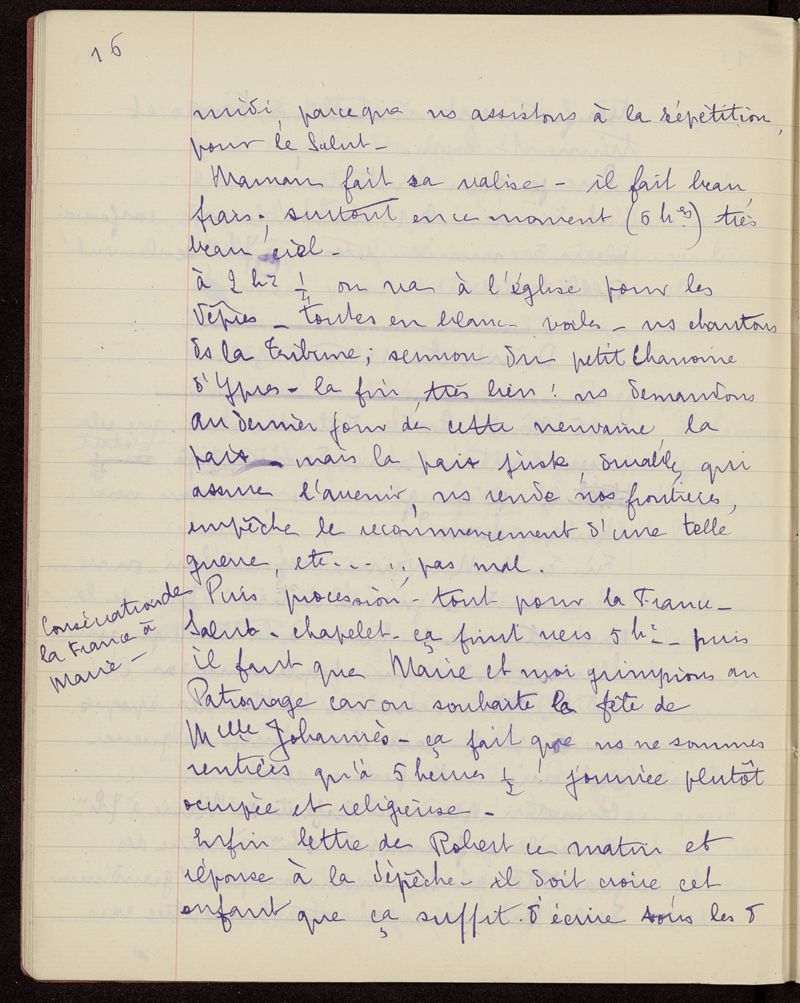 16
midi, parceque ns assistons à la répétition,
pour le Salut -
Maman fait sa valise - il fait beau,
frais, surtout en ce moment (6 hes) très
beau ciel -
à 2 hes 1/4 on va à l'église pour les
Vêpres - toutes en blanc - voiles - ns chantons
ds la tribune ; sermon du petit Chanoine
d'Ypres - la fin, très bien ! ns demandons
au dernier jour de cette neuvaine la
paix - mais la paix juste, durable, qui
assure l'avenir, ns rende nos frontières,
empêche le recommencement d'une telle
guerre, etc....., pas mal.
Consécration de
la France à
Marie -
Puis procession - tout pour la France -
Salut - chapelet - ça finit vers 5 hes - puis
il faut que Marie et moi grimpions au
Patronage car on souhaite la fête de
Melle Johannès - ça fait que ns ne sommes
rentrées qu'à 5 heures 1/2 ! journée plutôt
occupée et religieuse -
Enfin lettre de Robert ce matin et
réponse à la dépêche - il doit croire cet
enfant que ça suffit d'écrire tous les 5